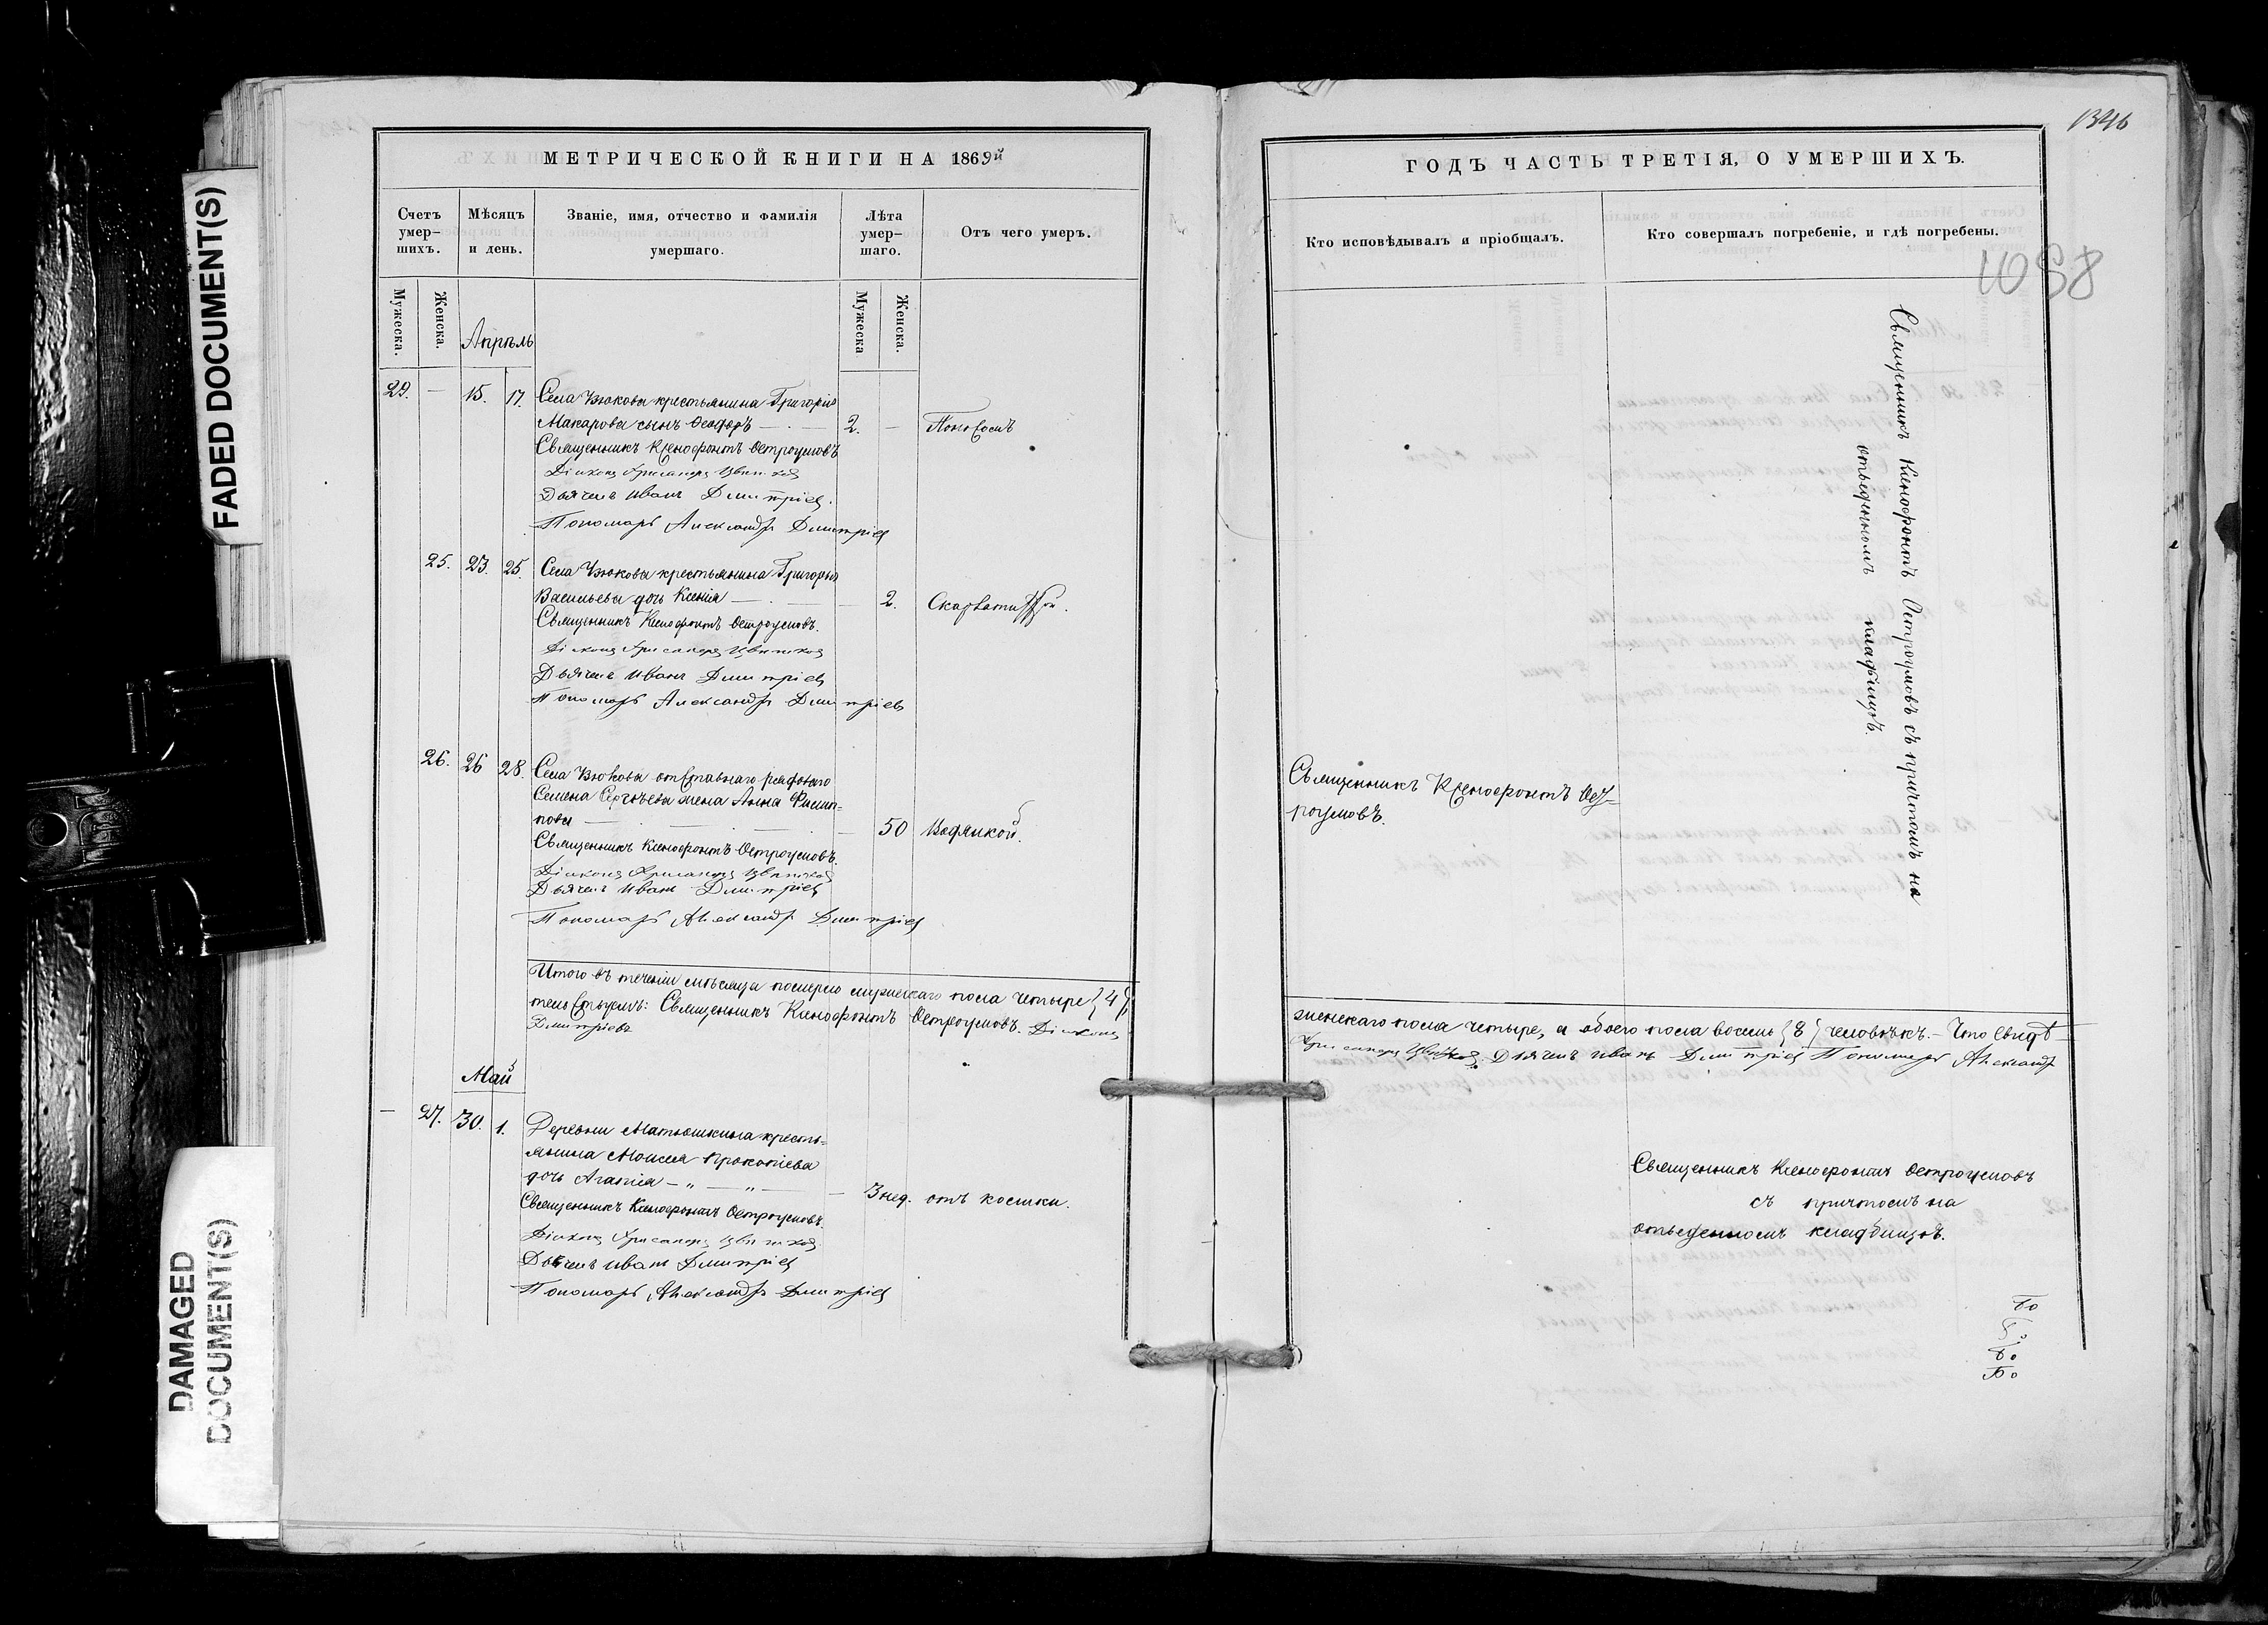 FADED DOCUMENT(S)
DAMAGED
DOCUMENT(S)
МЕТРИЧЕСКОЙ КНИГИ НА 1869й
Счетъ умер-шихъ.
Мѣсяцъ и день.
Званіе, имя, отчество и фамилія умершаго.
Лѣта умер-шаго.
Отъ чего умеръ.
Мужеска.
Женска.
Апрѣль
Мужеска
Женска.
29. — 15. 17. Села крестьянина Григорія
Макарова сынъ Ѳеодоръ — 2. — Поносомъ
Священникъ Ксенофонтъ Остроумовъ
Діаконъ Хрисанѳъ
Дьячекъ Иванъ Дмитріев.
Пономарь Александръ Дмитріев
25. 23. 25. Села крестьянина Григорья
Васильева дочь Ксенія — 2.
Священникъ Ксенофонтъ Остроумовъ.
Діаконъ Хрисанѳъ
Дьячекъ Иванъ Дмитріев
Пономарь Александръ Дмитріев
26. 26 28. Села отставнаго рядоваго
Семена Сергѣева жена Анна Филип=
пова — 50 Водянкой.
Священникъ Ксенофонтъ Остроумовъ.
Діаконъ Хрисанѳъ
Дьячекъ Иванъ Дмитріев
Пономарь Александръ Дмитріев
Итого въ теченіи мѣсяца померло мужескаго пола четыре {4},
тельствуемъ: Священникъ Ксенофонтъ Остроумовъ. Діаконъ
Дмитріевъ
Май
— 27. 30. 1. Деревни Матюшкина кресть=
янина Моисея Прокопіева
дочь Агапія — " — " — 3 нед. отъ косики.
Священникъ Ксенофонтъ Остроумовъ.
Діаконъ Хрисанѳъ
Дьячекъ Иванъ Дмитріев
Пономарь Александръ Дмитріев
1346
ГОДЪ ЧАСТЬ ТРЕТІЯ, О УМЕРШИХЪ.
Кто исповѣдывалъ и пріобщалъ.
Кто совершалъ погребеніе, и гдѣ погребены.
Священникъ Ксенофонтъ Остроумовъ съ причтомъ на
отведенномъ кладбищѣ.
Священникъ Ксенофонтъ Ост-
роумовъ.
женскаго пола четыре, а обоего пола восемь {8} человѣкъ. — Что свидѣ—
Хрисанѳъ Дьячекъ Иванъ Дмитріев Пономарь Александръ
Священникъ Ксенофонтъ Остроумовъ
съ причтомъ на
отведенномъ кладбищѣ.